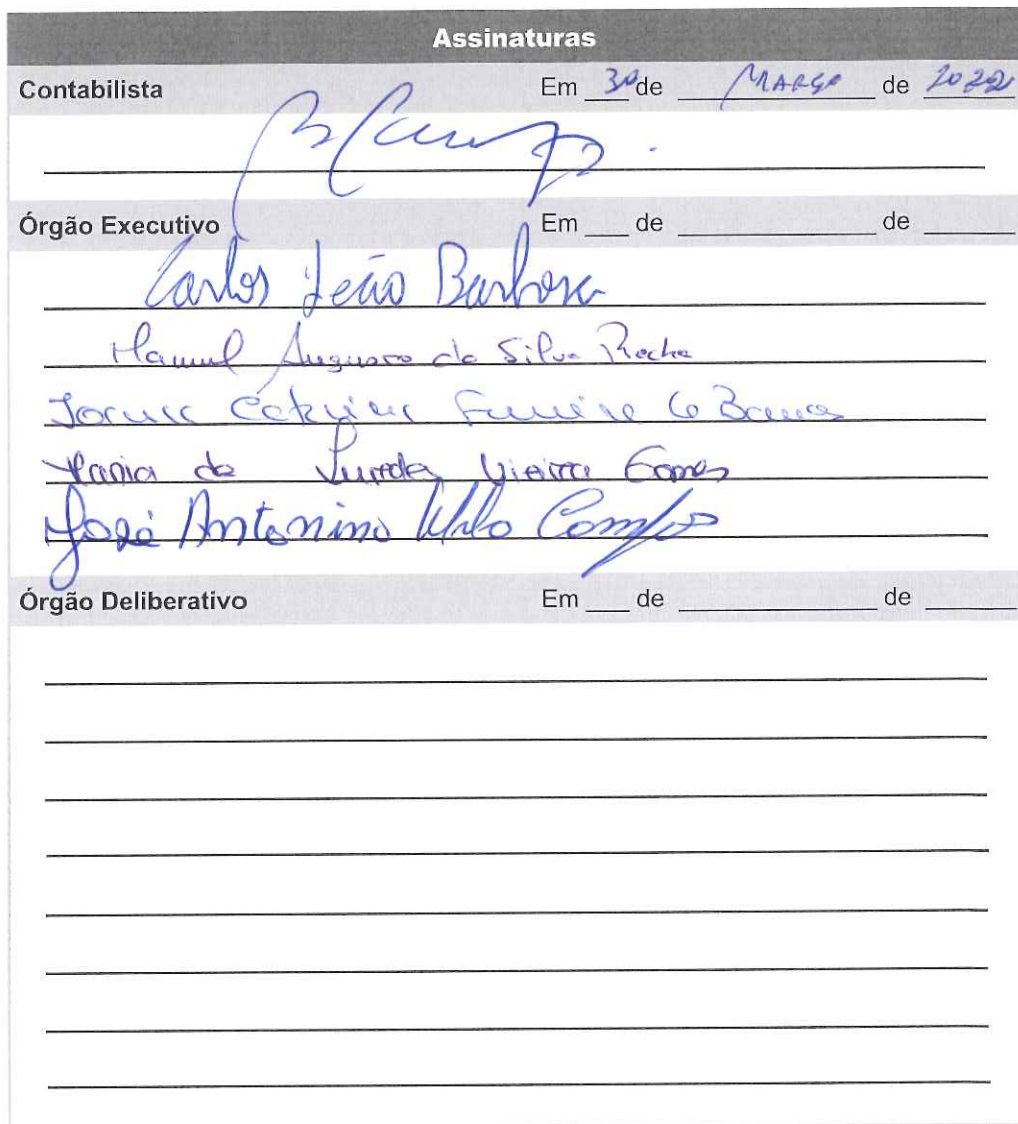 Assinaturas
Contabilista Em 30 de MARÇO de 2022
Órgão Executivo Em ___ de ___ de ___
Carlos João Barbosa
Manuel Augusto da Silva Rocha
Maria de Lurdes Vieira Gomes
José Antonino Campos
Órgão Deliberativo Em ___ de ___ de ___